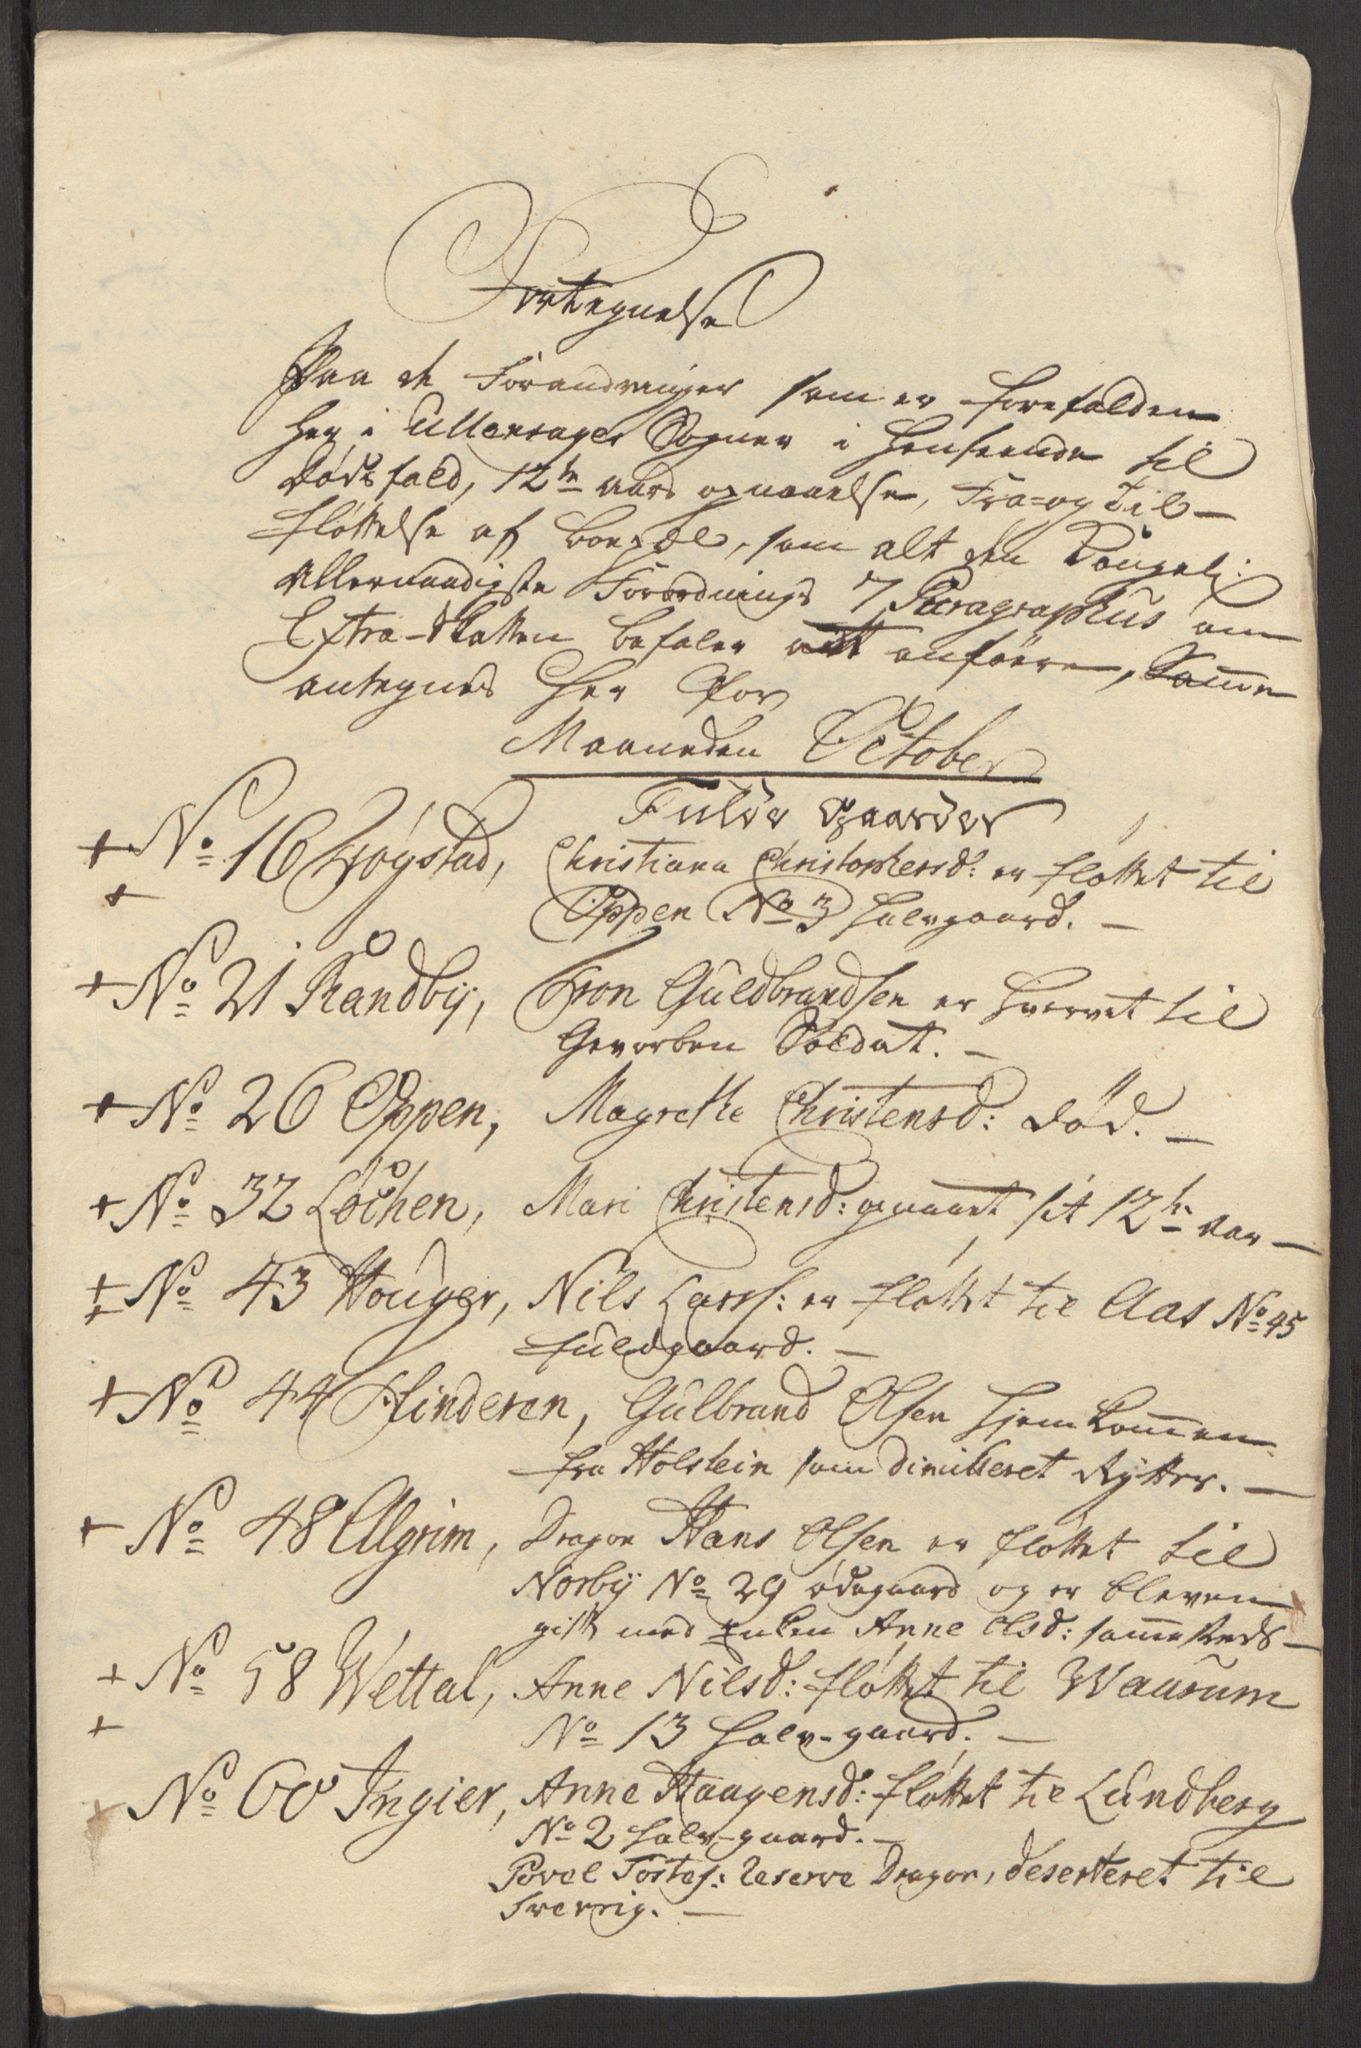 Fortegnelse
Paa de Forandringer som er forefalden
her i Ullensager Sogner i Henseende til
Dødsfald, 12te aars opnaaelse, Fra- og Til-
fløttelse af boepæl, som alt den Kongel:
Allernaadigste Forordnings 7 Paragraphus om
Extra-Skatten befaler att anføere, Samme
antegnes her for
Maaneden October
Fulde Gaarder
+ No 16 Trøgstad, Christiana Christophersd: er fløttet til
+ Oppen No 3 halvgaard. —
+ No 21 Randby, Tron Guldbrandsen er hvervet til
Gevorben Soldat. —
+ No 26 Oppen, Magrethe Christensd: død. —
+ No 32 Løchen, Mari Christensd: opnaaet sit 12te aar —
+ No 43 Houger, Nils Larss: er fløttet til Aas No 45
+ fuldgaard. —
+ No 44 Hinderen, Gulbrand Olsen hjemkommen
fra Holstein som dimitteret Rytter. —
+ No 48 Algrim, Dragon Hans Olsen er fløttet til
Norby No 29 ødegaard og er bleven
gift med Enken Anne Olsd: sammesteds —
+ No 58 Wettal, Anne Nilsd: fløttet til Waurum
+ No 13 halv-gaard. —
+ No 60 Ingier, Anne Haagensd: fløttet til Lundberg
No 2 halv-gaard. —
Povel Tostes: Reserve Dragon, deserteret til
Sverrig. —